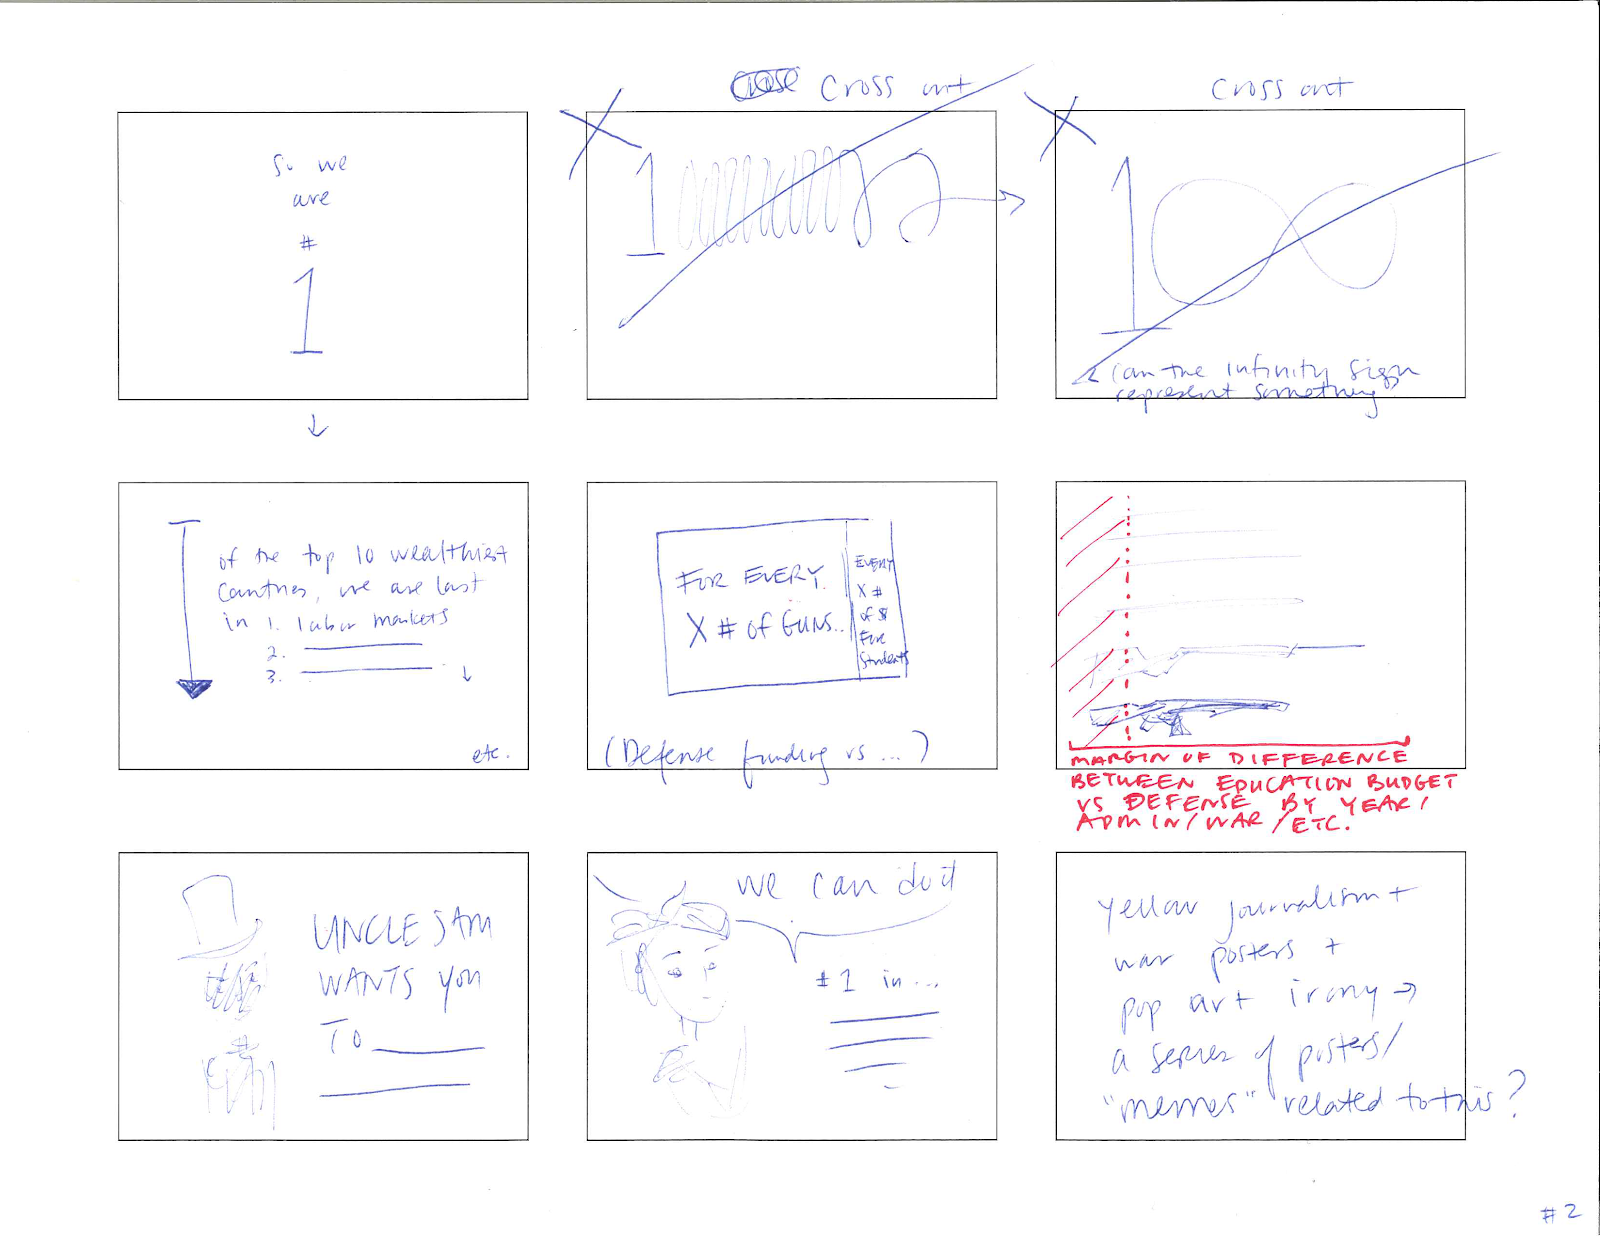 Cross out
Cross out
So we
are
#
1
1
1
can the infinity sign
represent something?
of the top 10 wealthiest
countries, we are last
in 1. labor markets
2.
3.
etc.
FOR EVERY
X # OF GUNS..
EVERY
X #
OF $
FOR
Students
(Defense funding vs ... )
MARGIN OF DIFFERENCE
BETWEEN EDUCATION BUDGET
VS DEFENSE BY YEAR/
ADMIN/WAR/ETC.
UNCLE SAM
WANTS YOU
TO
we can do it
#1 in...
yellow journalism +
war posters +
pop art irony →
a series of posters/
"memes" related to this?
#2